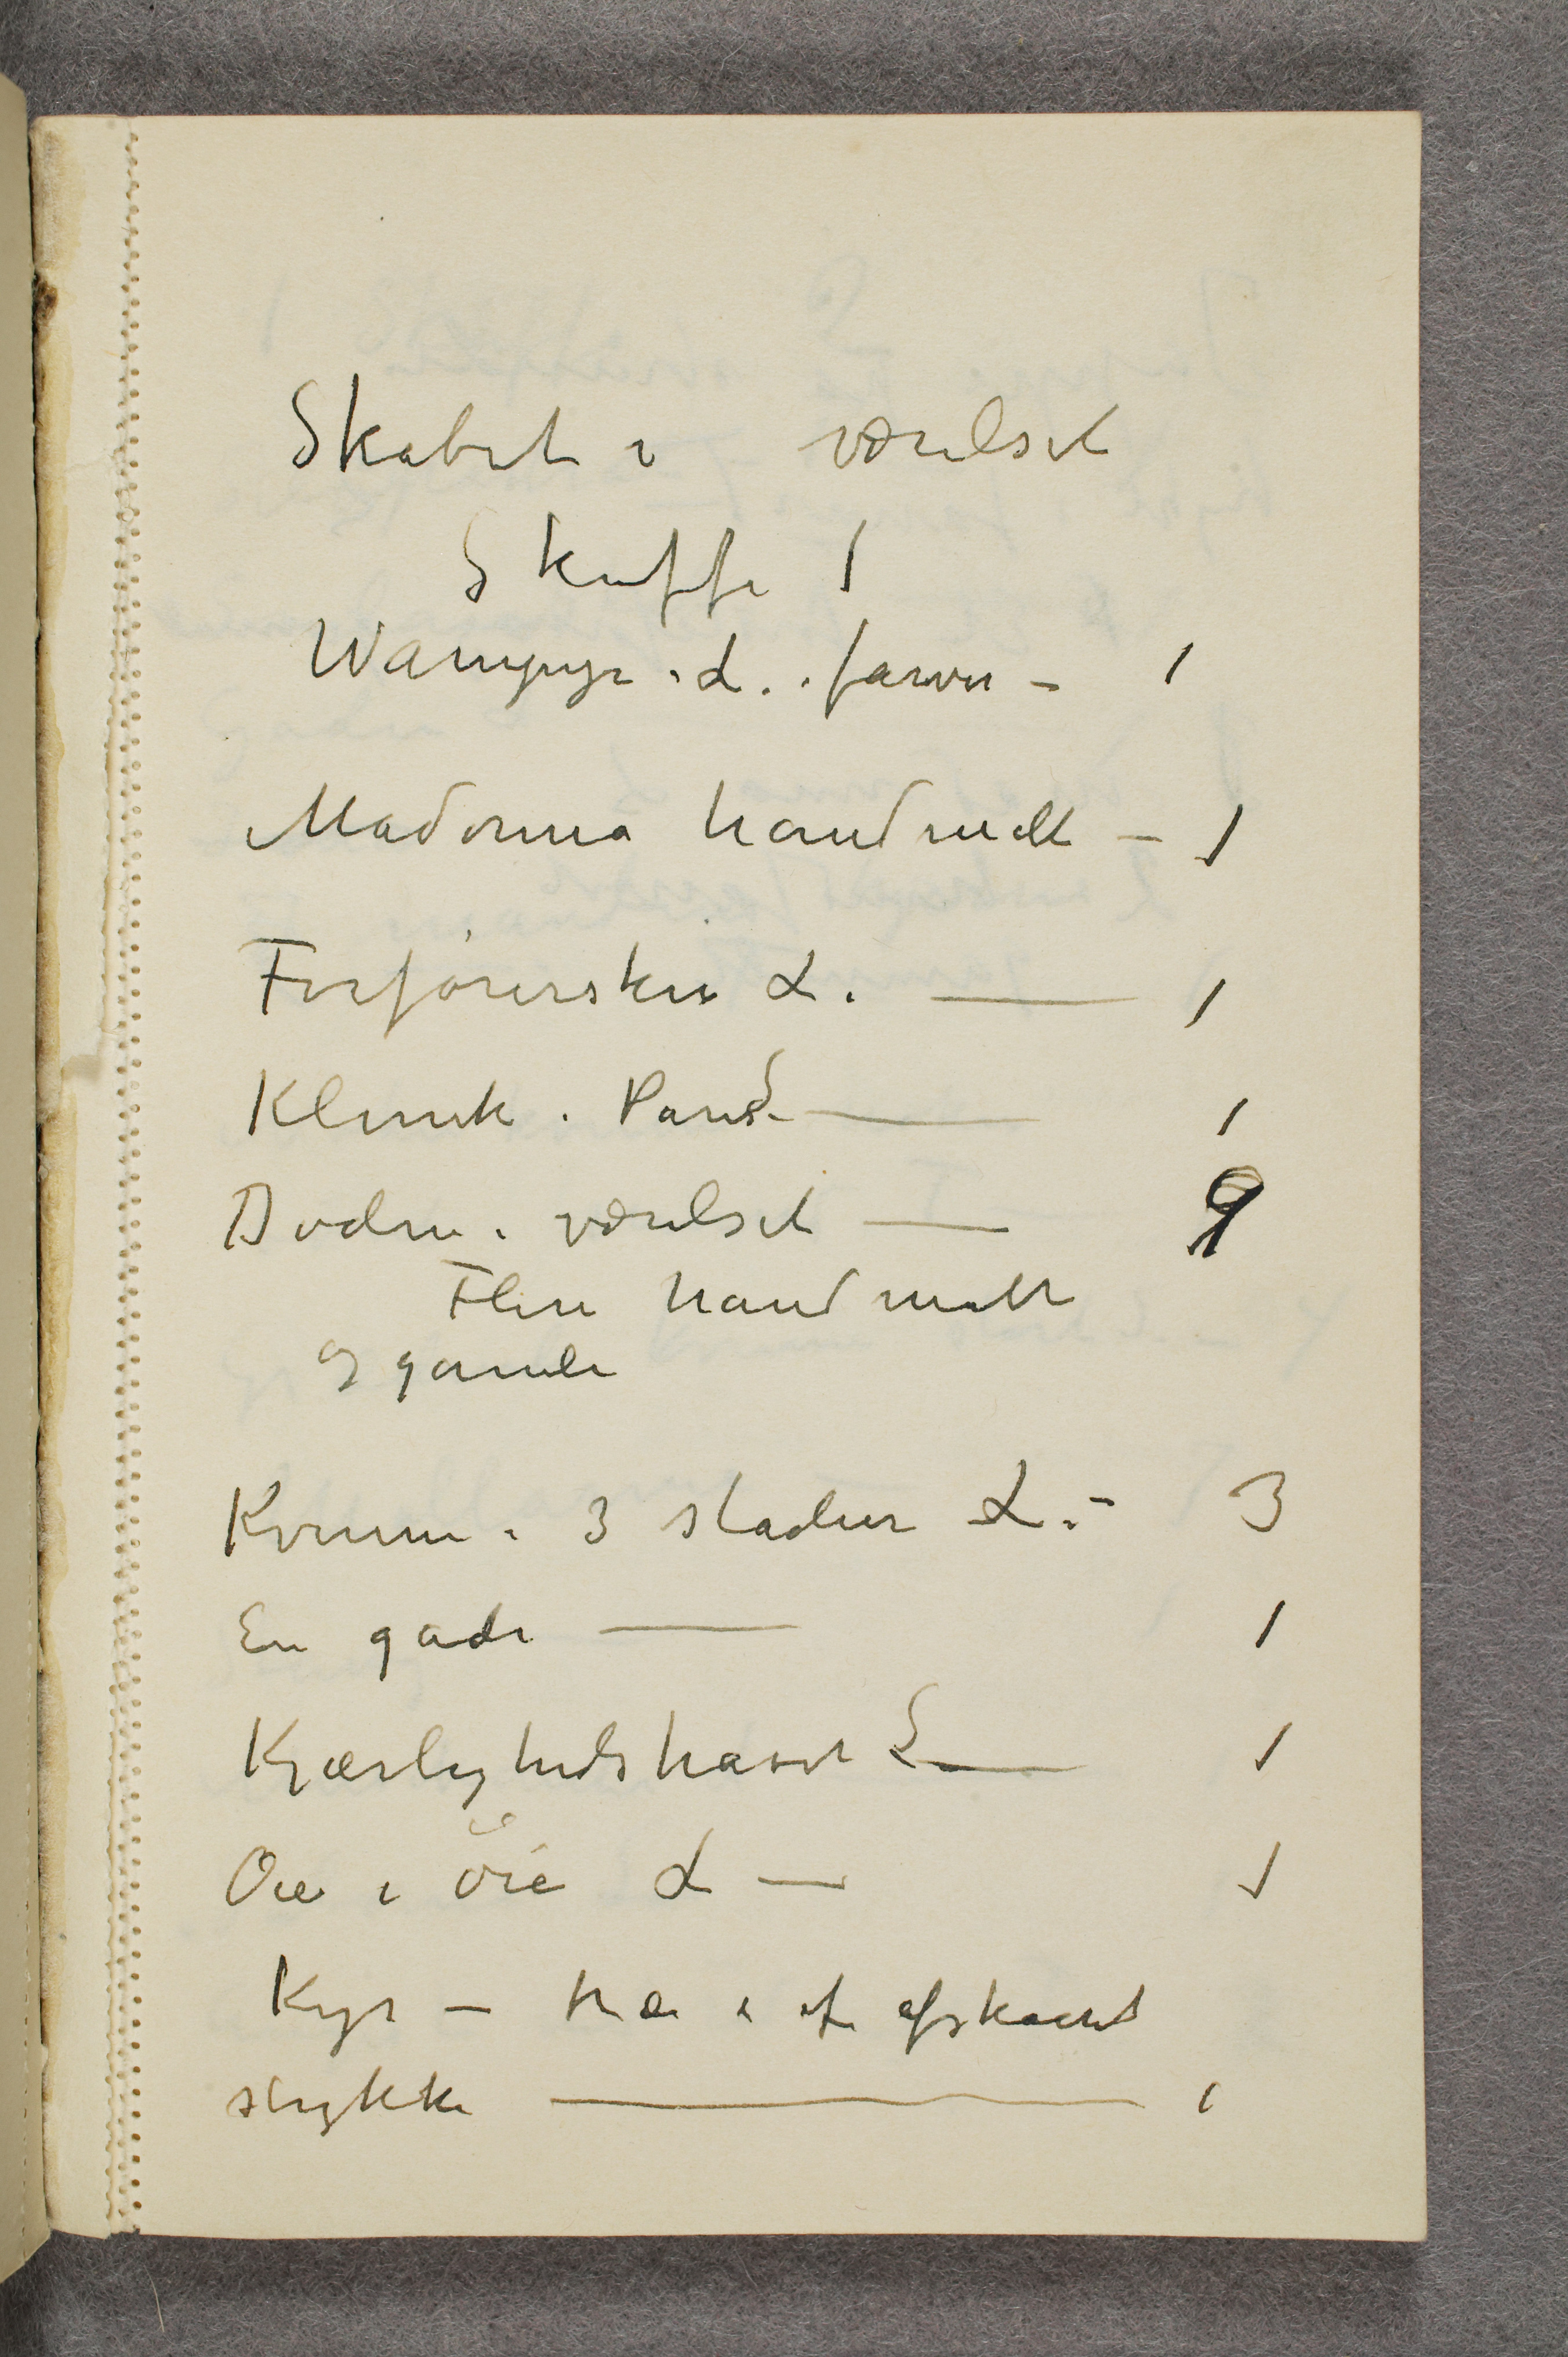 Skabet i værelset
Skuffe 1
Wampyr i L. i farver – 1
Madonna handmalt – 1
Forførersken L. — 1
Klinik i Paris — 1
Døden i værelset — 9
Flere handmalte
og gamle
Kvinnen i 3 stadier L. – 3
En gade — 1
Kjærlighedshavet — 1
Øie i Øie L — 1
Kys – træ i et afskaaret
stykke — 1